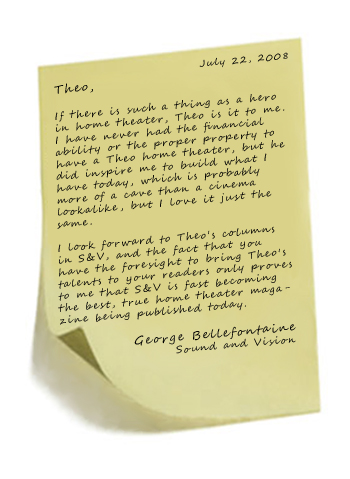 July 22, 2008
Theo,
If there is such a thing as a hero
in home theater, Theo is it to me.
I have never had the financial
ability or the proper property to
have a Theo home theater, but he
did inspire me to build what I
have today, which is probably
more of a cave than a cinema
lookalike, but I love it just the
same.
I look forward to Theo's columns
in S&V, and the fact that you
have the foresight to bring Theo's
talents to your readers only proves
to me that S&V is fast becoming
the best, true home theater maga-
zine being published today.
George Bellefontaine
Sound and Vision